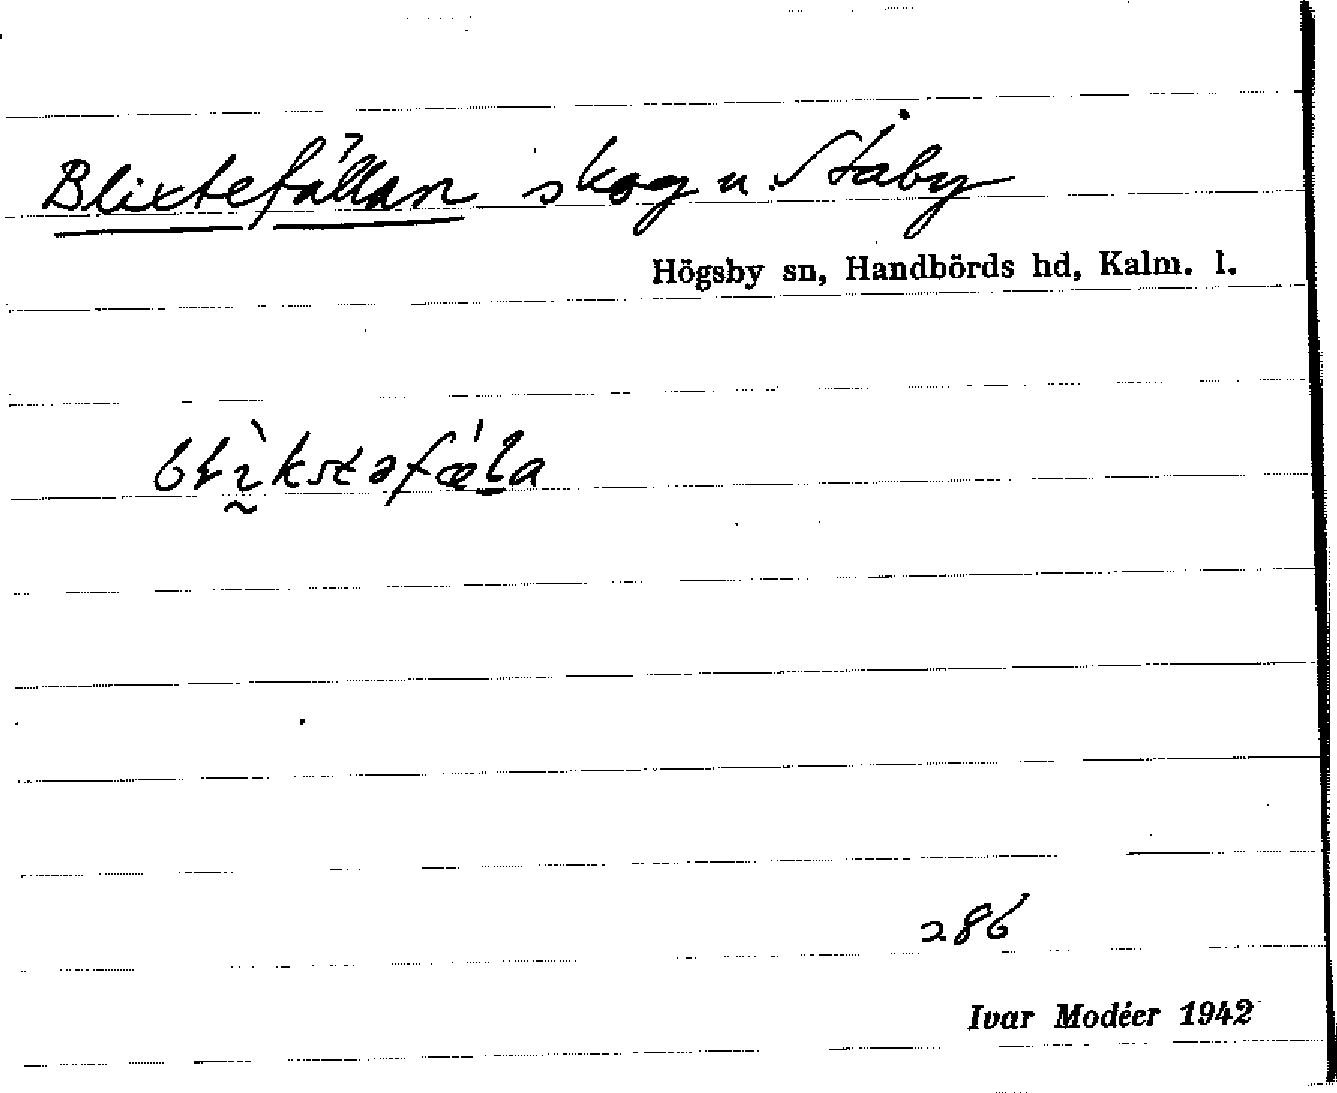 Blixtefällan skog u. Ståby
Högsby sn, Handbörds hd, Kalm. l.
blìkstəfæ̀la
286
Ivar Modéer 1942